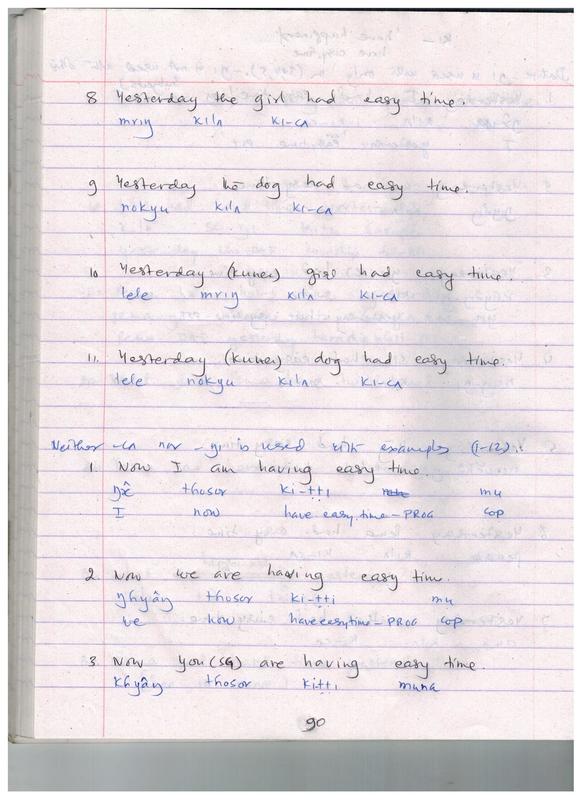 8 Yesterday the girl had easy time.
mrıŋ kılʌ kı-cʌ
9 Yesterday the dog had easy time.
nokyu kılʌ kı-cʌ
10 Yesterday (Kumar) girl had easy time.
lele mrıŋ kılʌ kı-cʌ
11. Yesterday (Kumar) dog had easy time.
lele nokyu kılʌ kı-cʌ
Neither -cʌ nor -yı is used with examples (1-12).
1. Now I am having easy time.
thosor ki-ṭṭı mu
I now have easy time-PROG cop
2. Now we are having easy time.
ŋhyâŋ thosor ki-ṭṭi mu
we now have easy time-PROG cop
3. Now you (SG) are having easy time.
khyâŋ thosor kiṭṭı muna
90